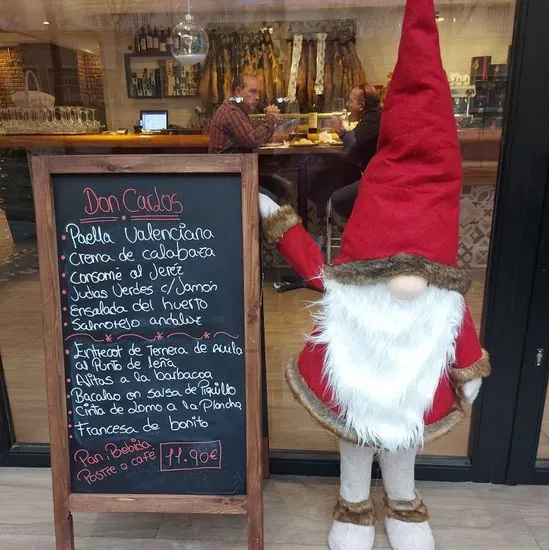 Don Carlos
Paella Valenciana
Crema de calabaza
Consomé al Jerez
Judias Verdes c/Jamón
Ensalada del huerto
Salmorejo andaluz
Entrecot de Ternera de Avila
al Punto de leña
Alitas a la barbacoa
Bacalao en salsa de Piquillo
Cinta de Lomo a la Plancha
Francesa de bonito
Pan, Bebida
Postre o café 11.90€